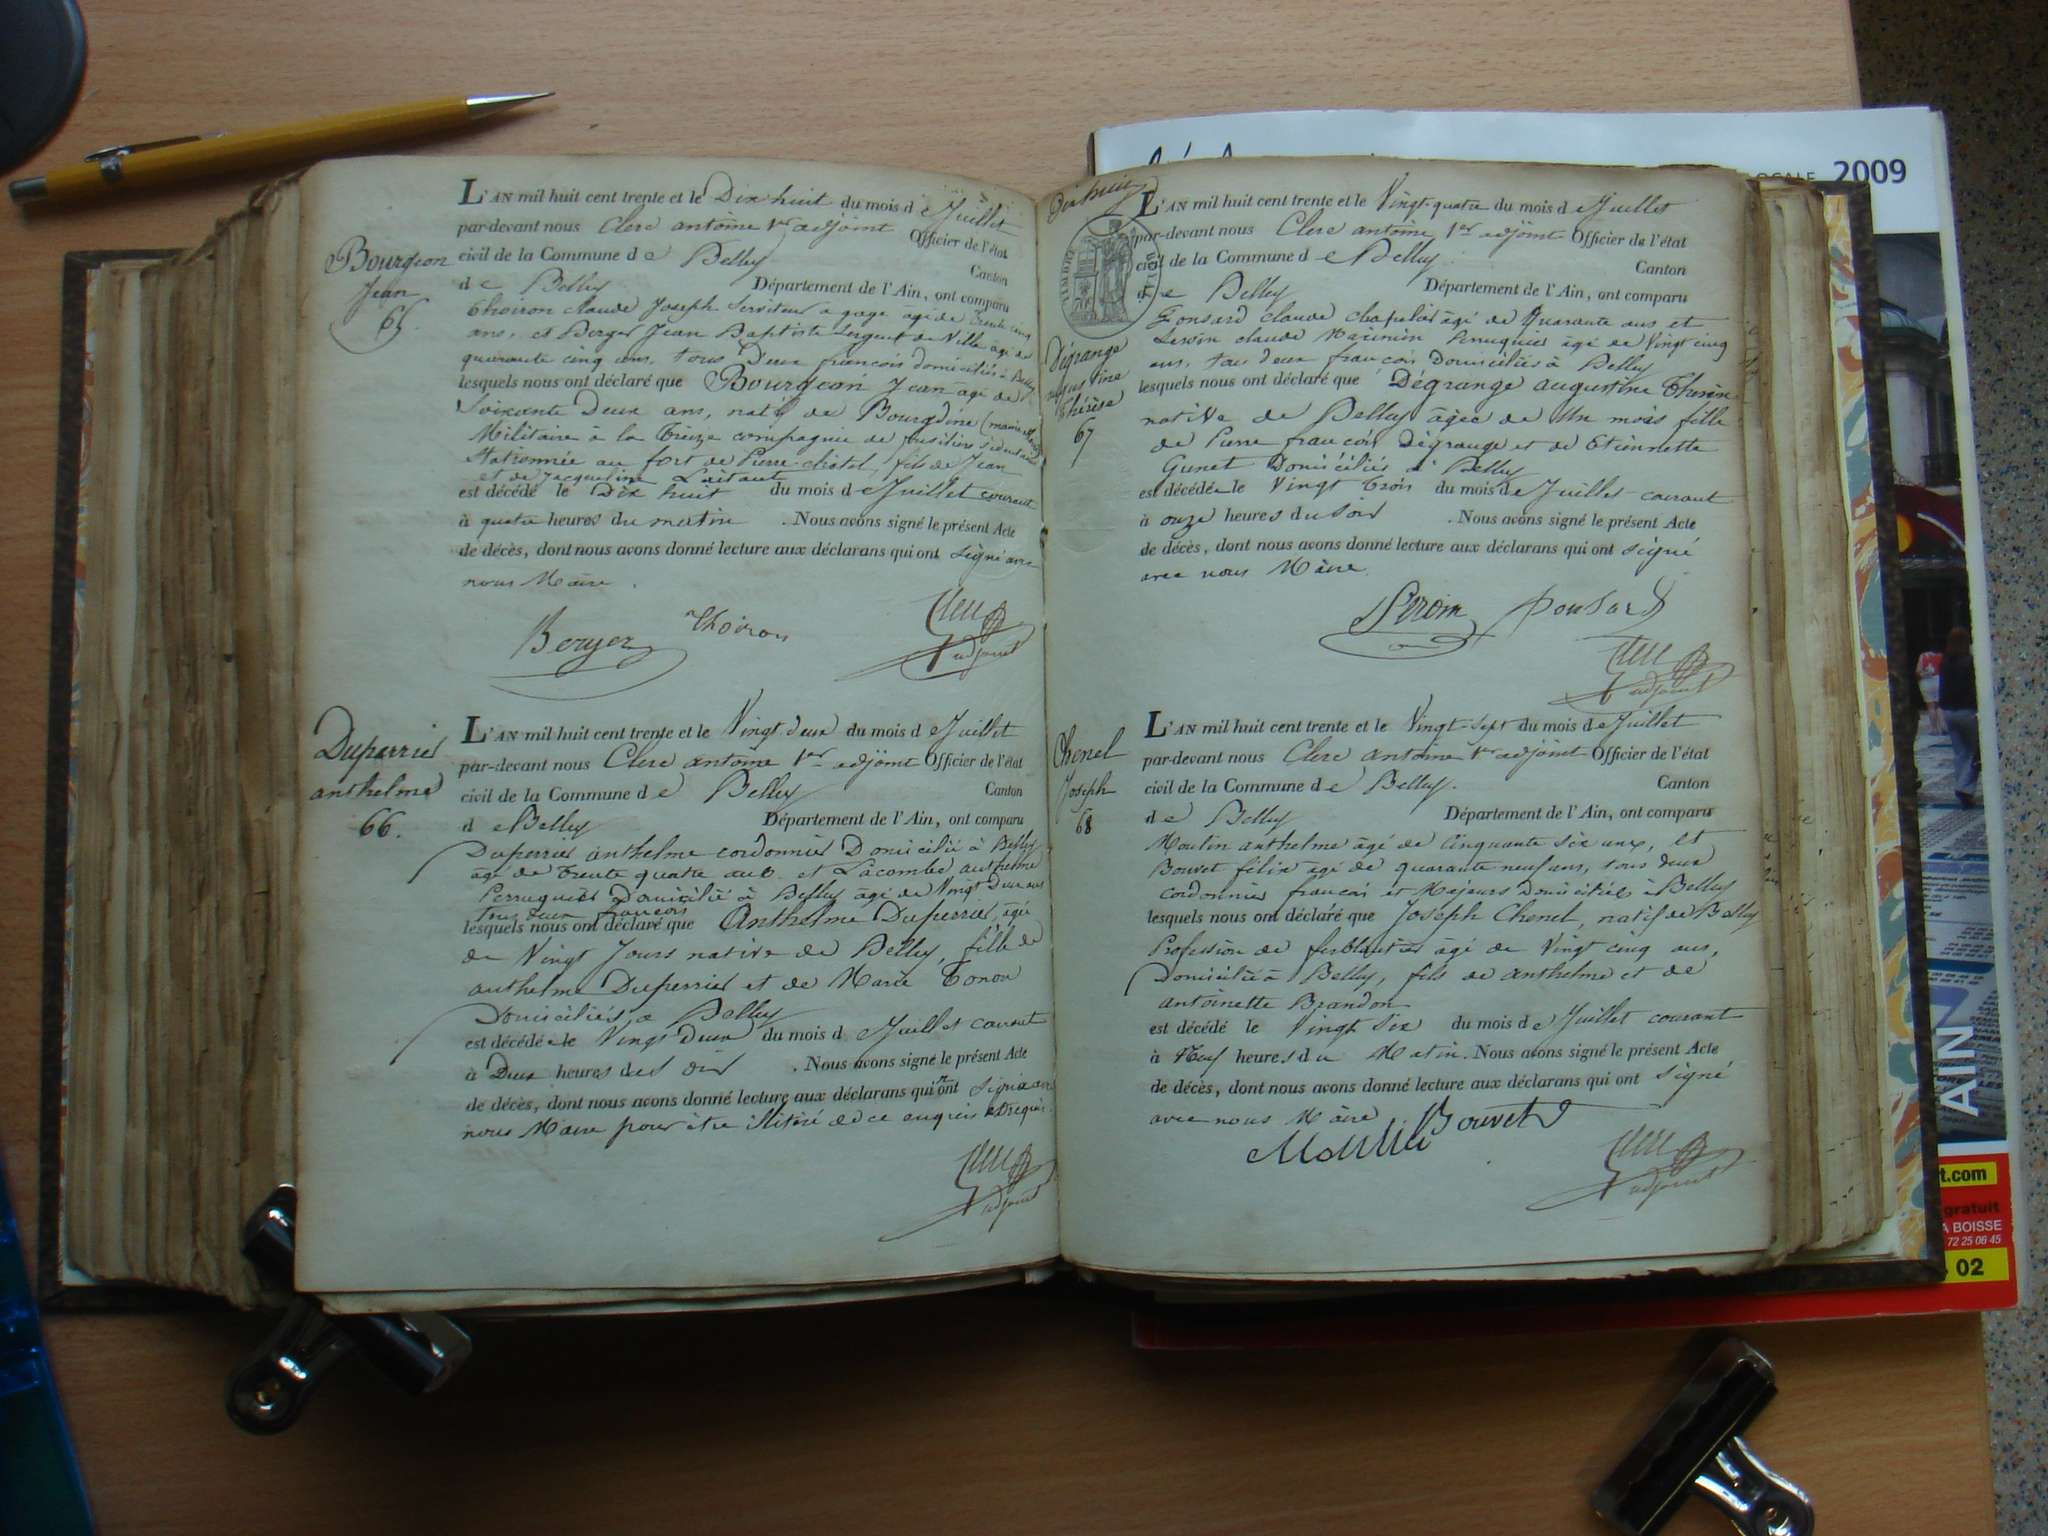 L'AN mil huit cent trente et le Dix huit du mois de Juillet
par-devant nous Clerc antoine 1er adjoint Officier de l'état
civil de la Commune de Belley Canton
de Belley Département de l'Ain, ont comparu
Bourgeon
Jean
65.
Thoiron claude Joseph Serviteur a gage agé de trente cinq
ans, et Berger Jean Baptiste Sergent de Ville âgé de
quarante cinq ans, tous Deux françois domiciliés à Belley
lesquels nous ont déclaré que Bourgeon Jean âgé de
Soixante Deux ans, natif de
Militaire à la Treize compagnie de fusiliers sédentaires
Stationnée au fort de Pierre-châtel, fils de Jean
et de Jacqueline
est décédé le Dix huit du mois de Juillet courant
à quatre heures du matin . Nous avons signé le présent Acte
de décès, dont nous avons donné lecture aux déclarans qui ont signé avec
nous Maire .
Berger Thoiron Clerc
adjoint
Duperrier
anthelme
66.
L'AN mil huit cent trente et le Vingt deux du mois de Juillet
par-devant nous Clerc antoine 1er adjoint Officier de l'état
civil de la Commune de Belley Canton
de Belley Département de l'Ain, ont comparu
Duperrier anthelme cordonnier Domicilié à Belley
âgé de trente quatre ans et Lacombe anthelme
Perruquier Domicilié à Belley âgé de Vingt Deux ans
tous deux françois
lesquels nous ont déclaré que Anthelme Duperrier, âgé
de Vingt Jours native de Belley, fille de
anthelme Duperrier et de Marie Tonon
Domiciliés a Belley
est décédée le Vingt Deux du mois de Juillet courant
à Deux heures du Soir . Nous avons signé le présent Acte
de décès, dont nous avons donné lecture aux déclarans qui n'ont signé avec
nous Maire pour être illitéré de ce enquis et requis.
Clerc
adjoint
Dix huit
TIMBRE ROYAL
L'AN mil huit cent trente et le Vingt-quatre du mois de Juillet
par-devant nous Clerc antoine 1er adjoint Officier de l'état
civil de la Commune de Belley Canton
de Belley Département de l'Ain, ont comparu
Dégrange
augustine
Thérèse
67
claude chapelier âgé de Quarante ans et
claude Maximin Perruquier âgé de Vingt cinq
ans, tous deux françois Domiciliés à Belley
lesquels nous ont déclaré que Dégrange augustine Thérèse
native de Belley âgée de Un mois fille
de Pierre françois Dégrange et de Etiennette
Gunet Domiciliés à Belley
est décédée le Vingt trois du mois de Juillet courant
à onze heures du soir . Nous avons signé le présent Acte
de décès, dont nous avons donné lecture aux déclarans qui ont signé
avec nous Maire.
Clerc
adjoint
Chenel
Joseph
68
L'AN mil huit cent trente et le Vingt-sept du mois de Juillet
par-devant nous Clerc antoine 1er adjoint Officier de l'état
civil de la Commune de Belley. Canton
de Belley Département de l'Ain, ont comparu
Moulin anthelme âgé de Cinquante six ans, et
Bouvet félix âgé de quarante neuf ans, tous deux
cordonnier françois et Majeurs Domiciliés à Belley
lesquels nous ont déclaré que Joseph Chenel, natif de Belley
Profession de ferblantier âgé de Vingt cinq ans,
Domicilié à Belley, fils de anthelme et de
antoinette Brandon
est décédé le Vingt Six du mois de Juillet courant
à Neuf heures du Matin. Nous avons signé le présent Acte
de décès, dont nous avons donné lecture aux déclarans qui ont signé
avec nous Maire Bouvet
Moulin
Clerc
adjoint
2009
AIN
t.com
gratuit
A BOISSE
72 25 06 45
02